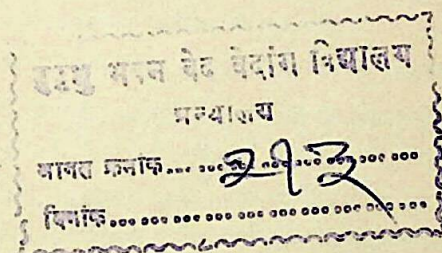 मुमुक्षु भवन वेद वेदांग विद्यालय
ग्रन्थालय
आगत क्रमांक... २१३
दिनांक...